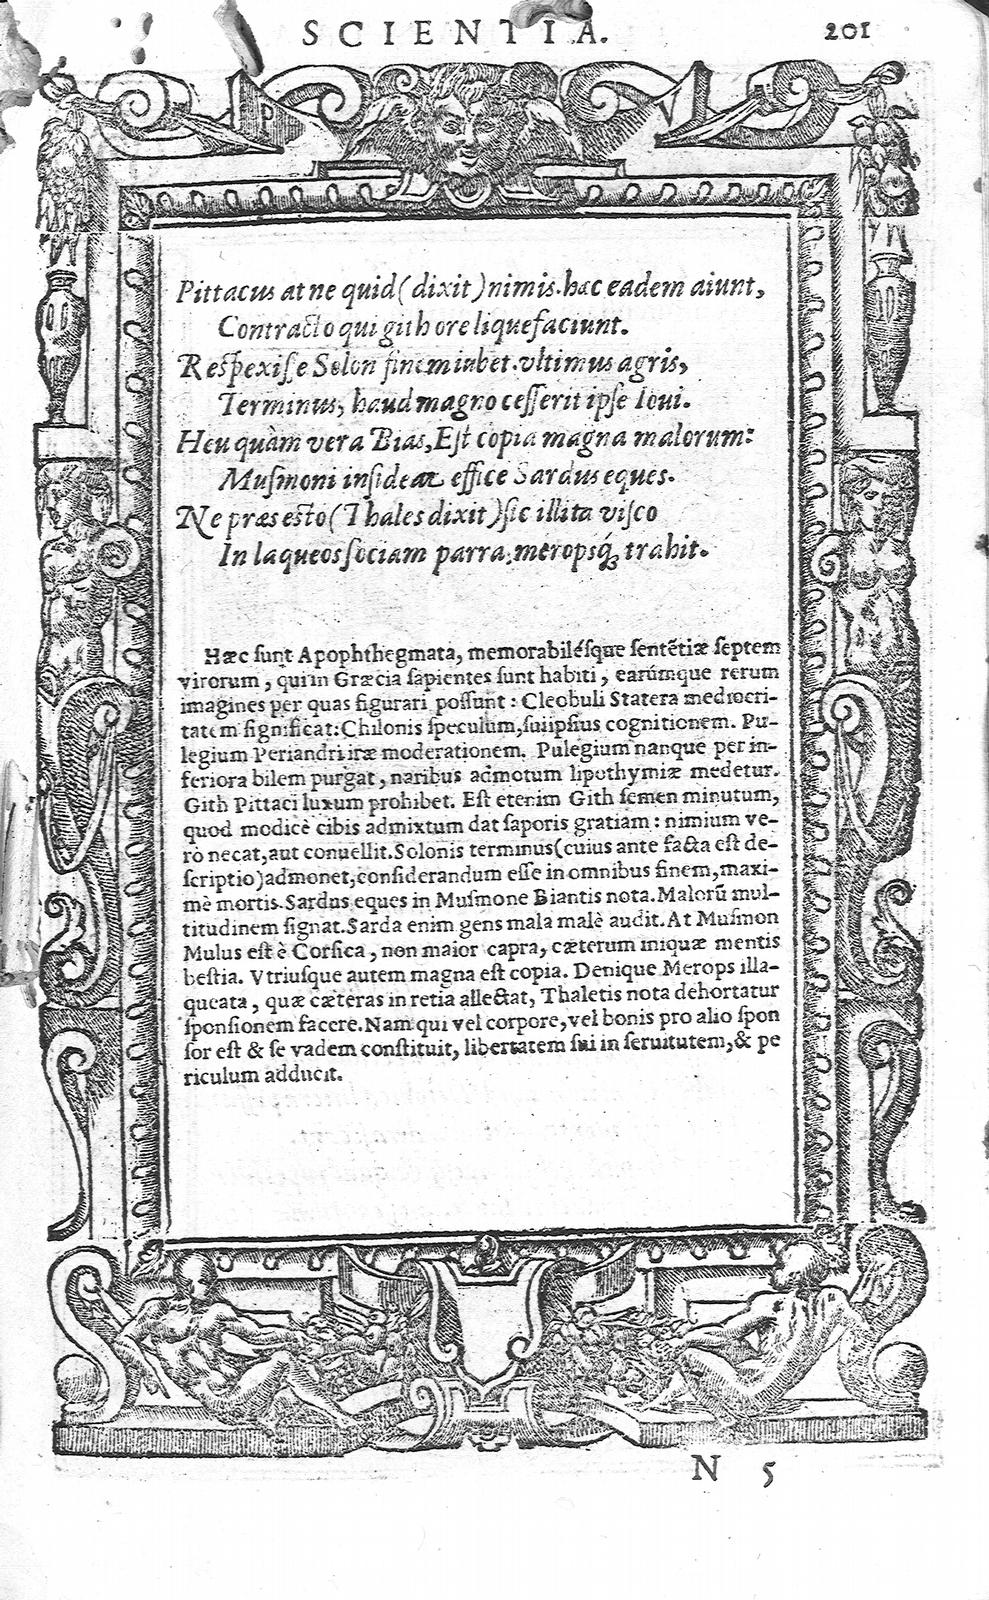 SCIENTIA. 201
P V
Pittacus at ne quid (dixit) nimis. hæc eadem aiunt,
Contracto qui gith ore liquefaciunt.
Respexiſſe Solon finem iubet. vltimus agris,
Terminus, haud magno ceſſerit ipſe Ioui.
Heu quàm vera Bias, Eſt copia magna malorum:
Muſmoni inſideat effice Sardus eques.
Ne præs esto (Thales dixit) ſic illita viſco
In laqueos ſociam parra, meropsq́; trahit.
Hæc ſunt Apophthegmata, memorabiléſque ſentētiæ ſeptem
virorum, qui in Græcia ſapientes ſunt habiti, earúmque rerum
imagines per quas figurari poſſunt: Cleobuli Statera mediocri-
tatem ſignificat: Chilonis ſpeculum, ſuiipſius cognitionem. Pu-
legium Periandri iræ moderationem. Pulegium nanque per in-
feriora bilem purgat, naribus admotum lipothymiæ medetur.
Gith Pittaci luxum prohibet. Eſt etenim Gith ſemen minutum,
quod modicè cibis admixtum dat ſaporis gratiam: nimium ve-
rò necat, aut conuellit. Solonis terminus (cuius ante facta eſt de-
ſcriptio) admonet, conſiderandum eſſe in omnibus finem, maxi-
mè mortis. Sardus eques in Muſmone Biantis nota. Malorū mul-
titudinem ſignat. Sarda enim gens mala malè audit. At Muſmon
Mulus eſt è Corſica, non maior capra, cæterum iniquæ mentis
beſtia. Vtriuſque autem magna eſt copia. Denique Merops illa-
queata, quæ cæteras in retia allectat, Thaletis nota dehortatur
ſponſionem facere. Nam qui vel corpore, vel bonis pro alio ſpon
ſor eſt & ſe vadem conſtituit, libertatem ſui in ſeruitutem, & pe
riculum adducit.
N 5